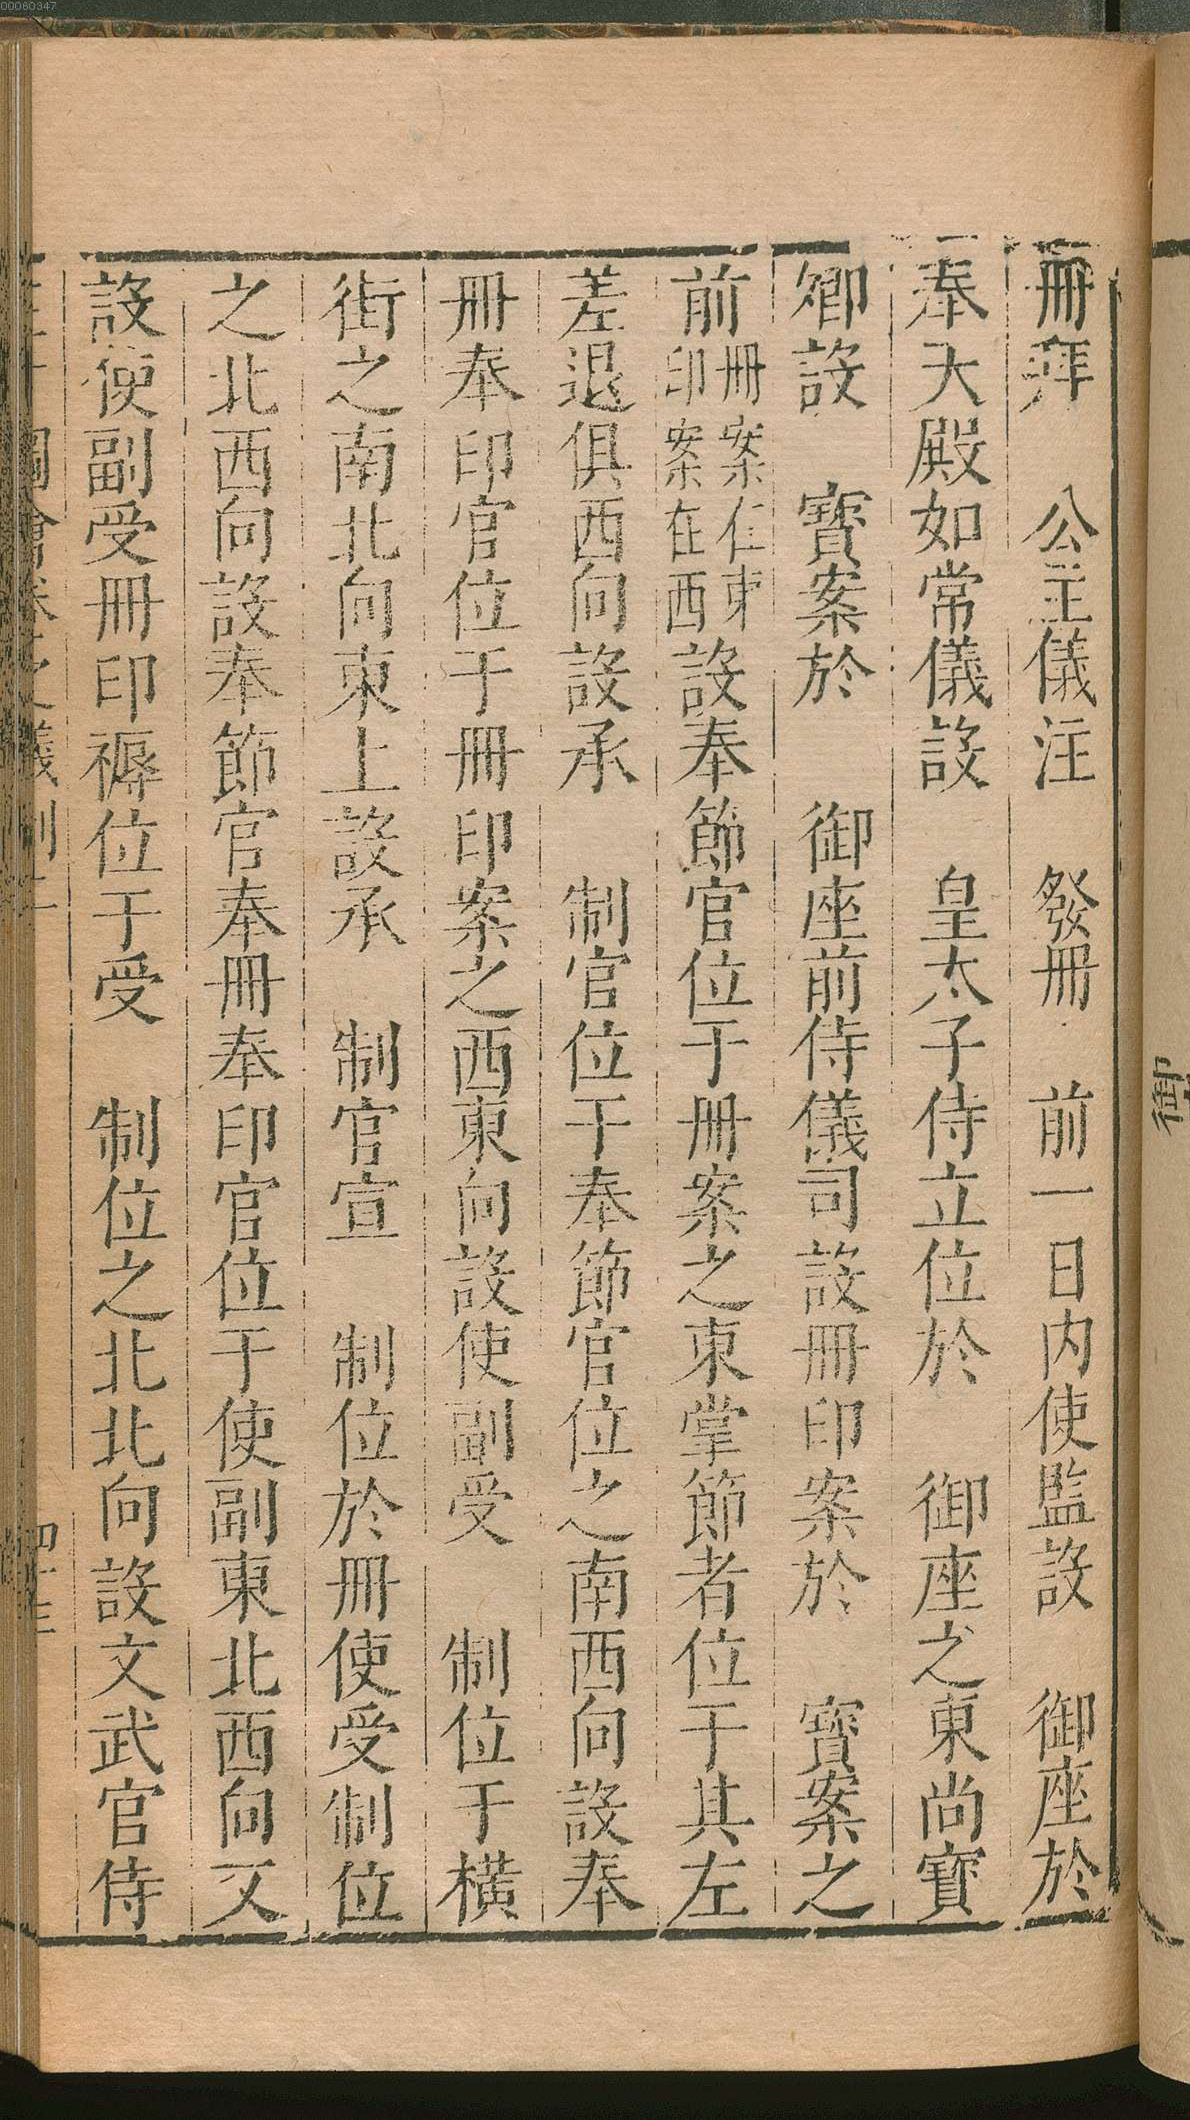 冊拜 公主儀注 發冊 前一日内使監設 御座於
奉天殿如常儀設 皇太子侍立位於 御座之東尚寶
卿設 寶案於 御座前侍儀司設冊印案於 寶案之
前冊案在東印案在西設奉節官位于冊案之東掌節者位于其左
差退俱西向設承 制官位于奉節官位之南西向設奉
冊奉印官位于冊印案之西東向設使副受 制位于橫
街之南北向東上設承 制官宣 制位於冊使受制位
之北西向設奉節官奉冊奉印官位于使副東北西向又
設使副受冊印褥位于受 制位之北北向設文武官侍
圖會卷之儀制
御
00060347